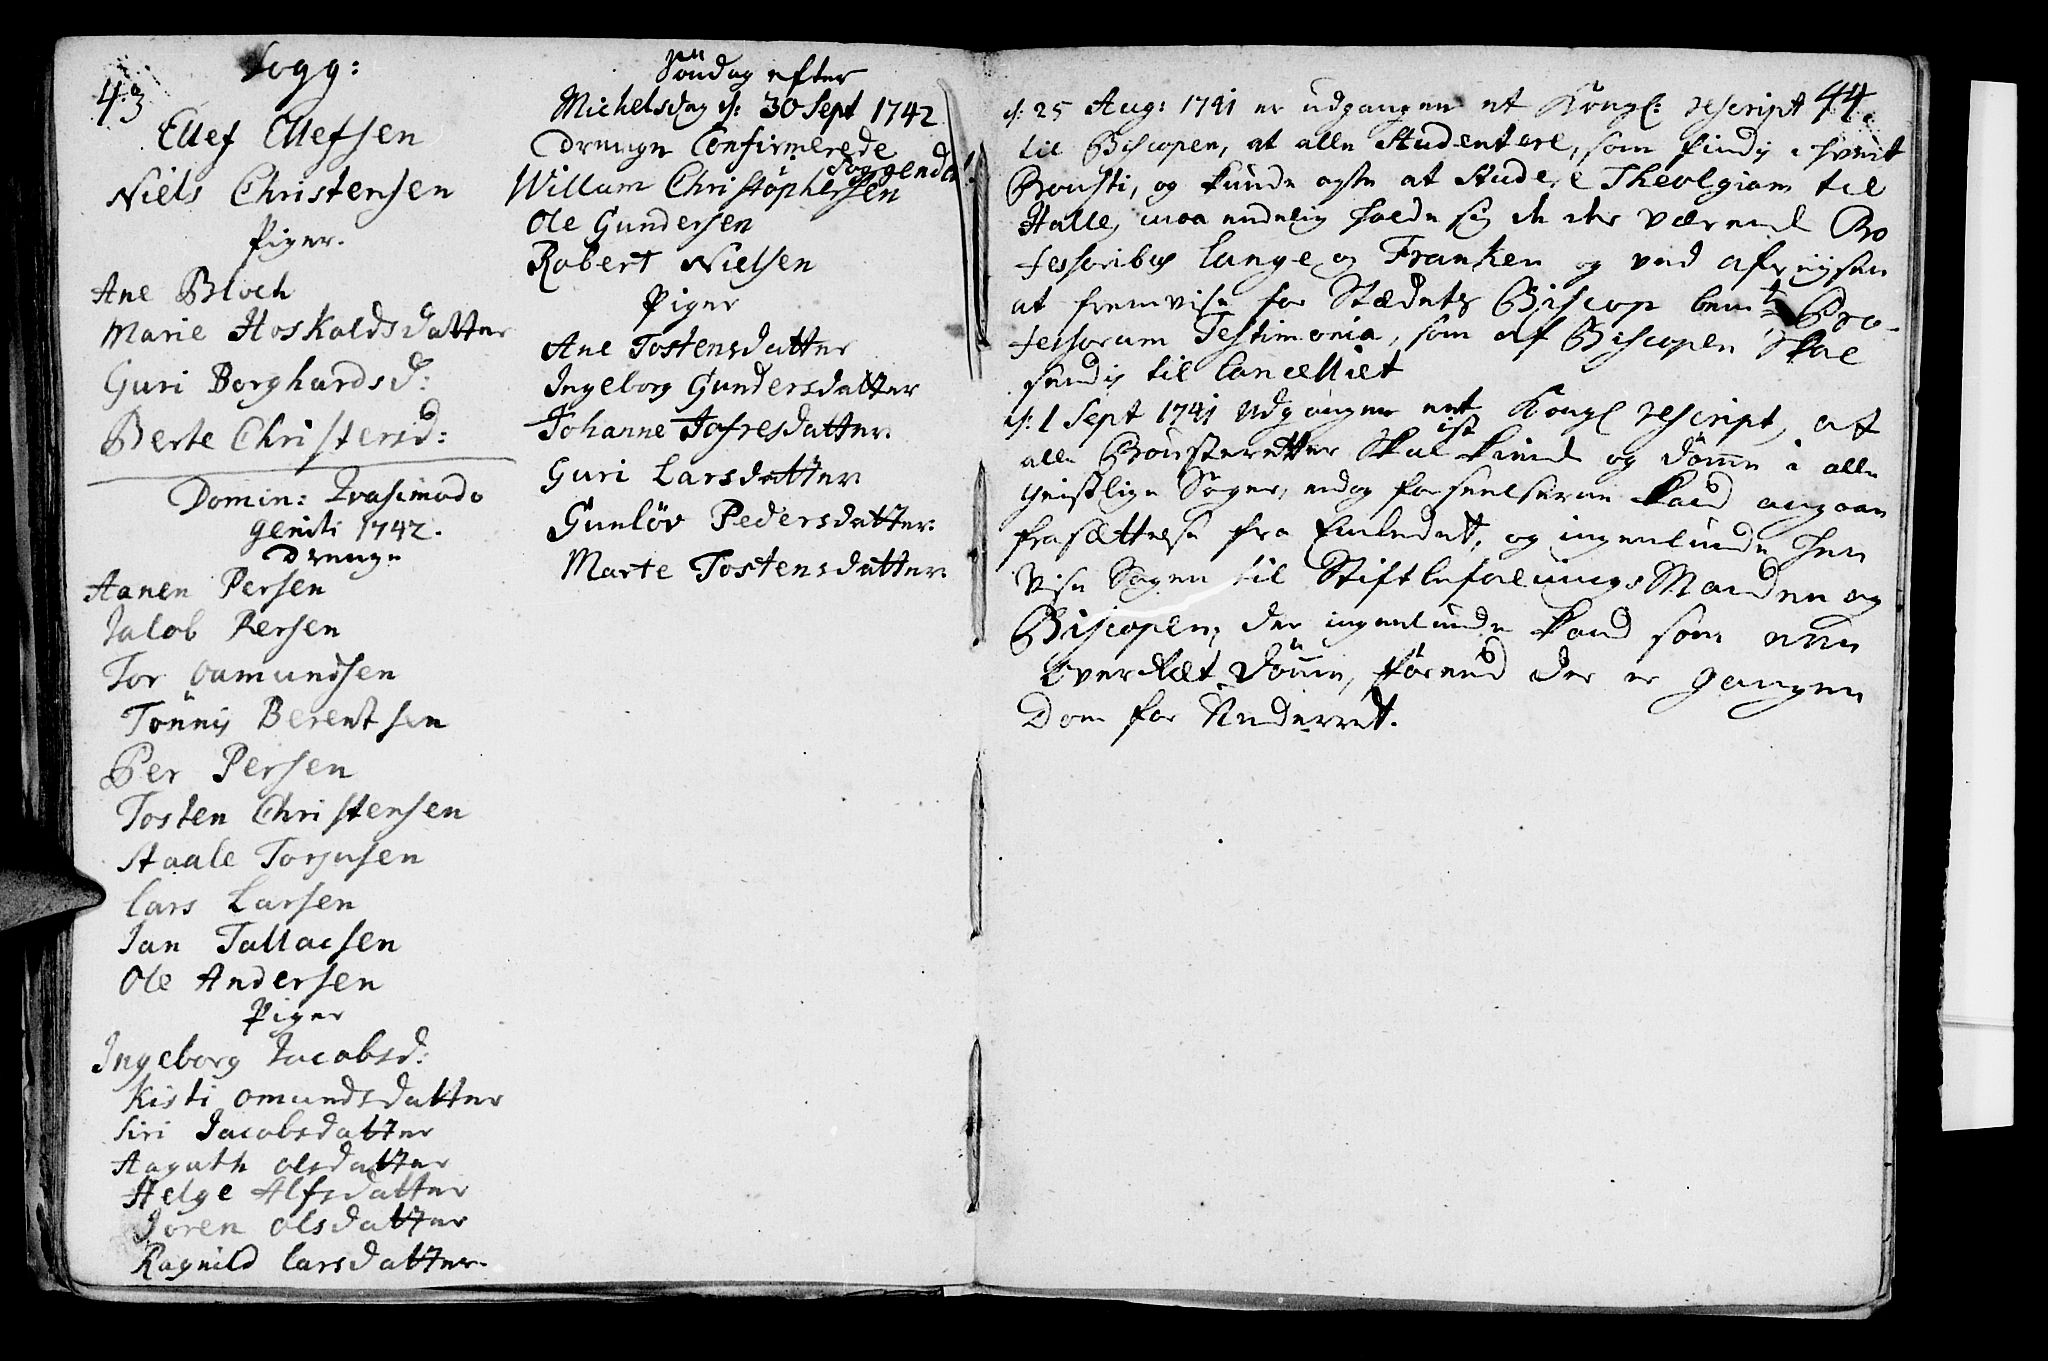 43
Sogg:
Ellef Ellefsen
Niels Christensen
Piger.
Ane Bloch
Marie Hoskoldsdatter
Guri Borghardsd:
Berte Christensd:
Domin: Qvasimodo
geniti 1742.
Drenge
Aanen Persen
Jakob Persen
Tor Aamundsen
Tönnis Berentsen
Per Persen
Tosten Christensen
Staale Torjusen
Lars Larsen
Jan Tallacsen
Ole Andersen
Piger
Ingeborg Jacobsd:
Kisti omundsdatter
Siri Jacobsdatter
Aagath olsdatter
Helge Alfsdatter
Joren olsdatter
Ragnild Larsdatter.
Söndag efter
Michelsdag d: 30 Sept 1742
Drenge Confirmerede
Soggendal:
Willum Christophersen
Ole Gundersen
Robert Nielsen
Piger
Ane Tostensdatter
Ingeborg Gundersdatter
Johanne Jofresdatter.
Guri Larsdatter
Gunlöv Pedersdatter.
Marte Tostensdatter.
44.
d: 25 Aug: 1741 er udgangen et Kongl: rescript
til Biscopen, at alle Studentere, som findis i hvert
Provsti, og kunde agte at Studere Theologiam til
Halle, maa endelig holde sig de der værende Pro
fessoribus Lange og Franken og ved afreysen
at fremvise for Stædets Biscop bemte Pro-
fessorum Testimonia, som af Biscopen skal
sendis til Cancelliet
d: 1 Sept 1741 udgangen et Kongl rescript, at
alle Provsteretter skal kiende og dömme i alle
geistlige Sager, endog forseelserne kand angaae
frasættelse fra Embedet, og ingenlunde hen
vise Sagen til StiftbefalningsManden og
Biscopen, der ingenlunde kand som een
overRæt dömme, förend der er gangen
Dom for Underret.